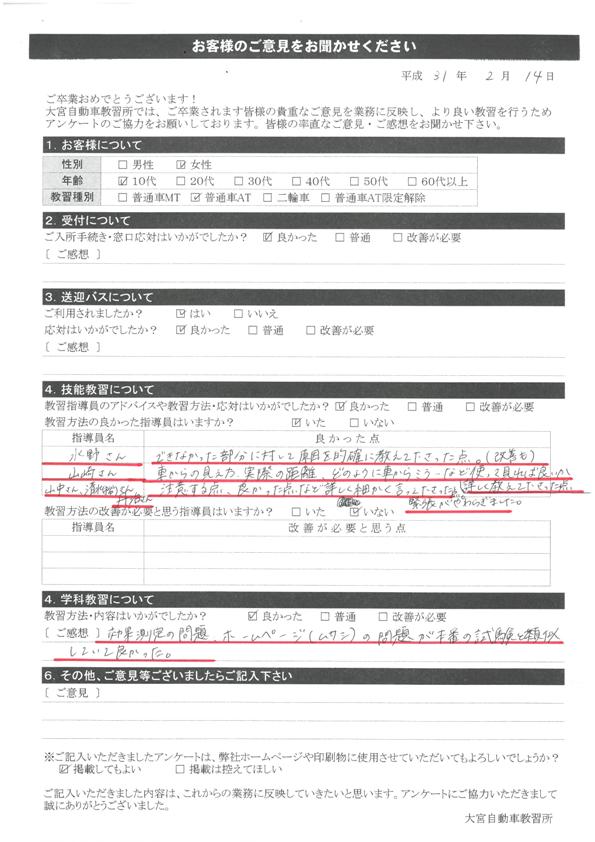 お客様のご意見をお聞かせください
平成 31 年 2 月 14 日
ご卒業おめでとうございます！
大宮自動車教習所では、ご卒業されます皆様の貴重なご意見を業務に反映し、より良い教習を行うため
アンケートのご協力をお願いしております。皆様の率直なご意見・ご感想をお聞かせ下さい。
1. お客様について
性別 □ 男性 ☑ 女性
年齢 ☑ 10代 □ 20代 □ 30代 □ 40代 □ 50代 □ 60代以上
教習種別 □ 普通車MT ☑ 普通車AT □ 二輪車 □ 普通車AT限定解除
2. 受付について
ご入所手続き・窓口応対はいかがでしたか？ ☑ 良かった □ 普通 □ 改善が必要
［ ご感想 ］
3. 送迎バスについて
ご利用されましたか？ ☑ はい □ いいえ
応対はいかがでしたか？ ☑ 良かった □ 普通 □ 改善が必要
［ ご感想 ］
4. 技能教習について
教習指導員のアドバイスや教習方法・応対はいかがでしたか？ ☑ 良かった □ 普通 □ 改善が必要
教習方法の良かった指導員はいますか？ ☑ いた □ いない
指導員名 良かった点
水野さん できなかった部分に対して原因を的確に教えて下さった点。(改善も)
山崎さん 車からの見え方、実際の距離、どのように車からミラーなど使って見れば良いか
山中さん、 さん 注意する点、良かった点など詳しく細かく言って下さった 詳しく教えて下さった点
さん 緊張がやわらぎました。
教習方法の改善が必要と思う指導員はいますか？ □ いた ☑ いない
指導員名 改善が必要と思う点
4. 学科教習について
教習方法・内容はいかがでしたか？ ☑ 良かった □ 普通 □ 改善が必要
［ ご感想 ］ 効果測定の問題、ホームページ(ムサシ)の問題が本番の試験と類似
していて良かった。
6. その他、ご意見等ございましたらご記入下さい
［ ご意見 ］
※ご記入いただきましたアンケートは、弊社ホームページや印刷物に使用させていただいてもよろしいでしょうか？
☑ 掲載してもよい □ 掲載は控えてほしい
ご記入いただきました内容は、これからの業務に反映していきたいと思います。アンケートにご協力いただきまして
誠にありがとうございました。
大宮自動車教習所